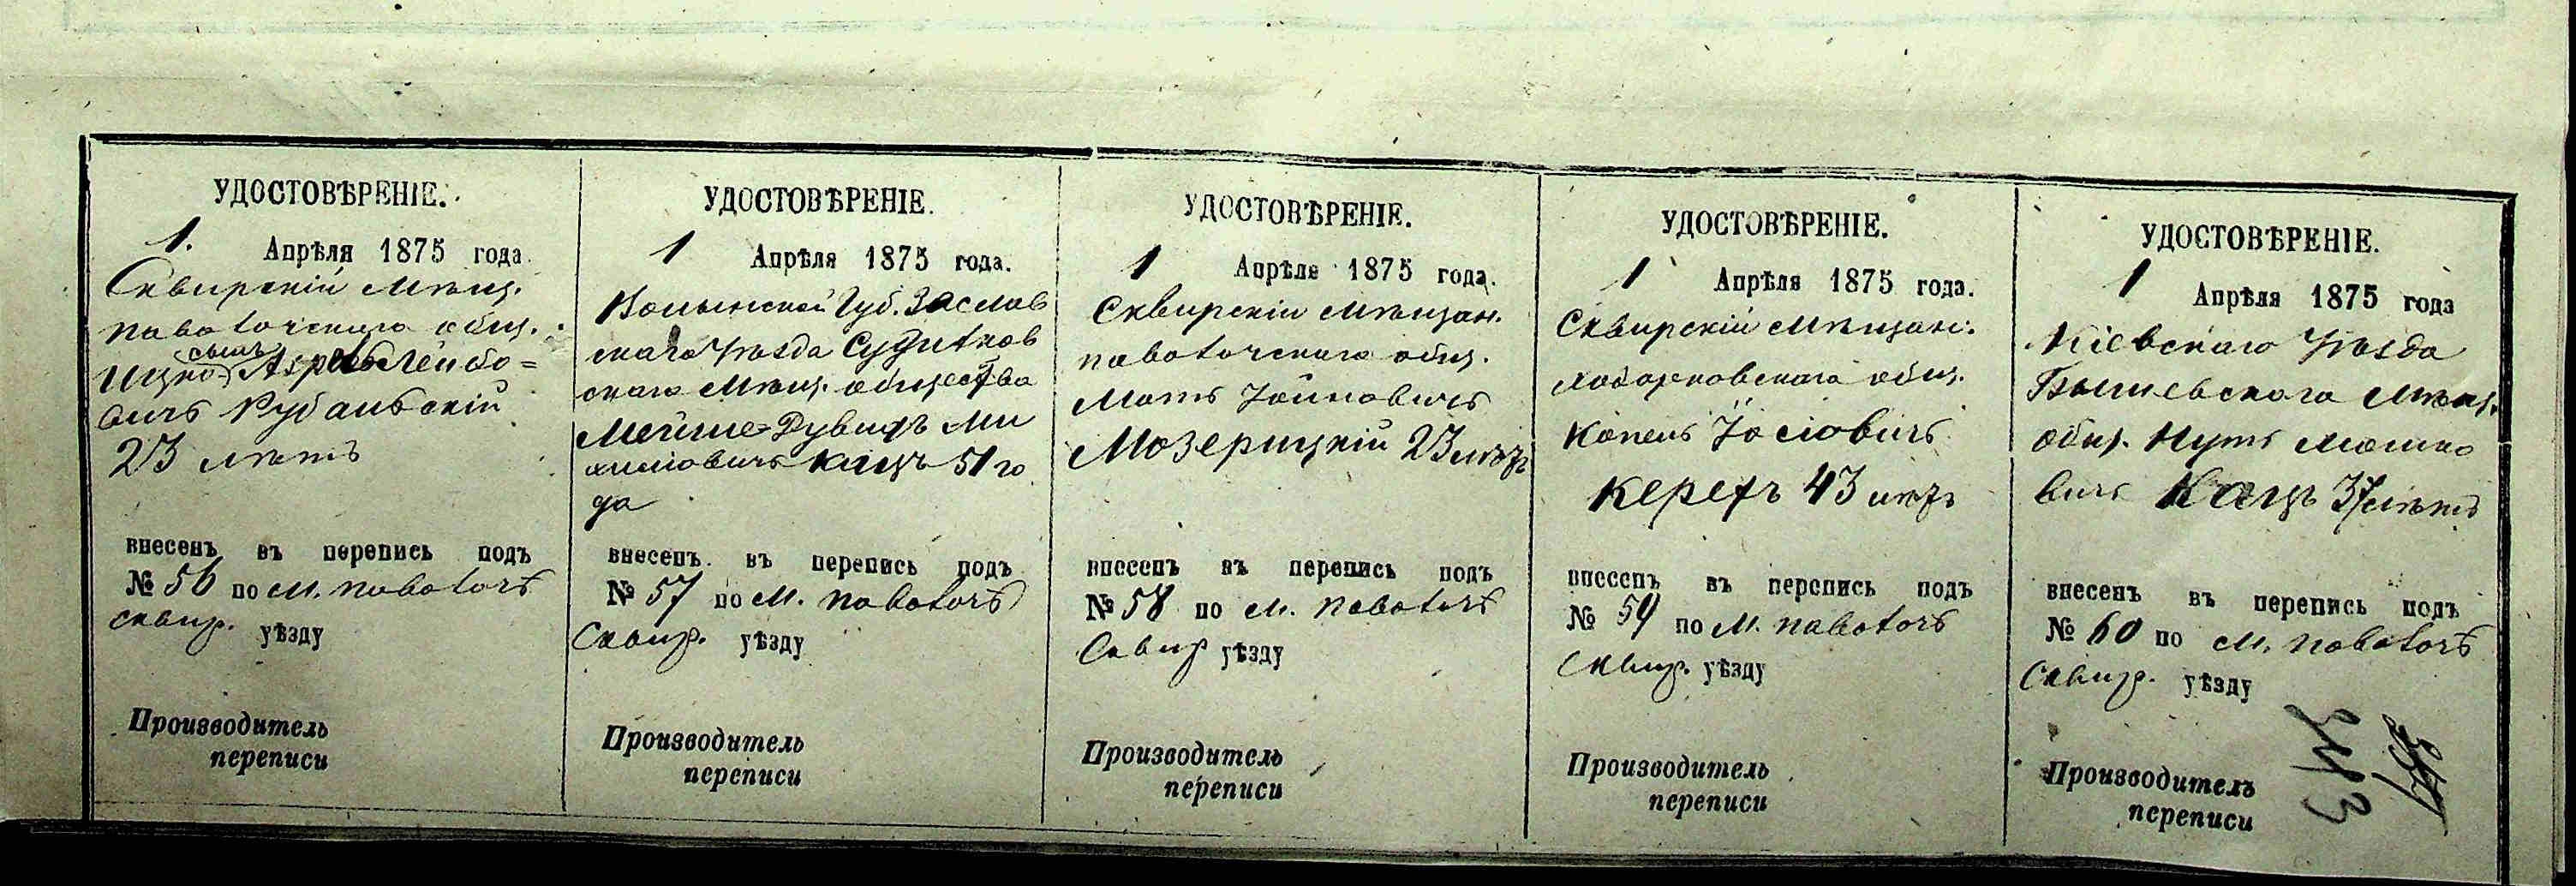 УДОСТОВѢРЕНІЕ.
1. Апрѣля 1875 года.
Сквирскій мѣщ.
паволочского общ.
сынъ
Ицко Лейбо=
вичъ Рубанскій
23 лѣтъ
внесенъ въ перепись подъ
№ 56 по м. паволочъ
сквир. уѣзду
Производитель
переписи
УДОСТОВѢРЕНІЕ.
1 Апрѣля 1875 года.
Волынской Губ. Заслав
скаго Уѣзда Судилков
скаго мѣщ. общества
Мейше Дувидъ Ми
хилювичъ Кацъ 51 го
да
внесенъ въ перепись подъ
№ 57 по м. паволочъ
Сквир. уѣзду
Производитель
переписи
УДОСТОВѢРЕНІЕ.
1 Апрѣля 1875 года.
Сквирскій мѣщан.
паволочского общ.
Мотъ Іойновичъ
Мозерицкій 23 лѣтъ
внесенъ въ перепись подъ
№ 58 по м. паволочъ
Сквир уѣзду
Производитель
переписи
УДОСТОВѢРЕНІЕ.
1 Апрѣля 1875 года.
Сквирскій мѣщан.
ходорковского общ.
Копель Іосіовичъ
Керетъ 43 лѣтъ
внесенъ въ перепись подъ
№ 59 по м. паволочъ
Сквир. уѣзду
Производитель
переписи
УДОСТОВѢРЕНІЕ.
1 Апрѣля 1875 года
Кіевскаго Уѣзда
Бышевского мѣщ.
общ. Нутъ Мошко
вичъ Кацъ 37 лѣтъ
внесенъ въ перепись подъ
№ 60 по м. паволочъ
Сквир. уѣзду
Производитель
переписи